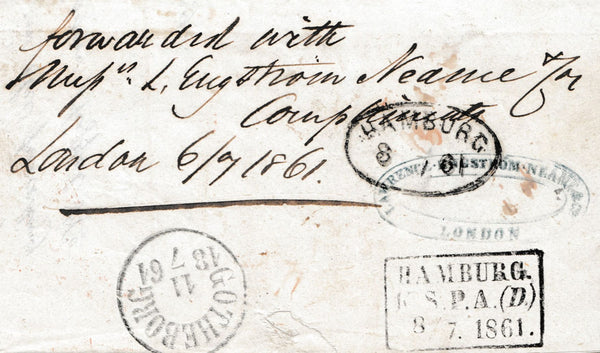 forwarded with
Messrs L, Engström Neame & Co
Compliments
London 6/7 1861.
HAMBURG
8 7 61
LAWRENCE·ENGSTROM·NEAME & Co
LONDON
GOTHEBORG
11
7 61
HAMBURG.
K. S. P. A. (D)
8/7. 1861.